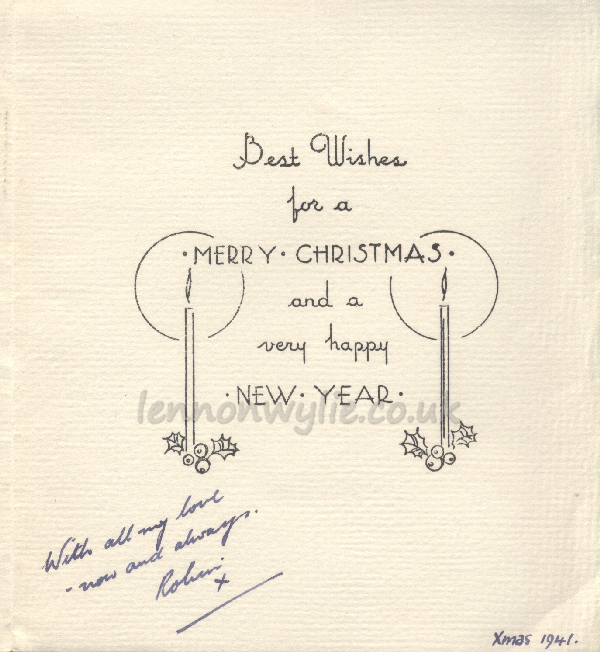 Best Wishes
for a
·MERRY· CHRISTMAS·
and a
very happy
·NEW· YEAR·
lennonwylie.co.uk
With all my love
- now and always.
Robin
x
Xmas 1941.